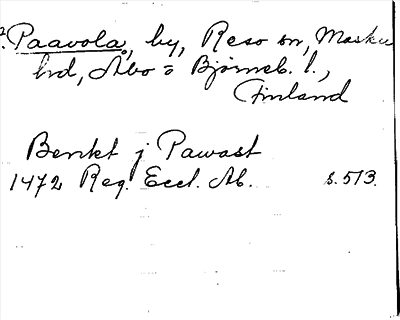 Paavola, by, Reso sn, Masku
hrd, Åbo o Björneb. l.,
Finland
Benkt j Pawast
1472 Reg. Eccl. Ab. s. 513.